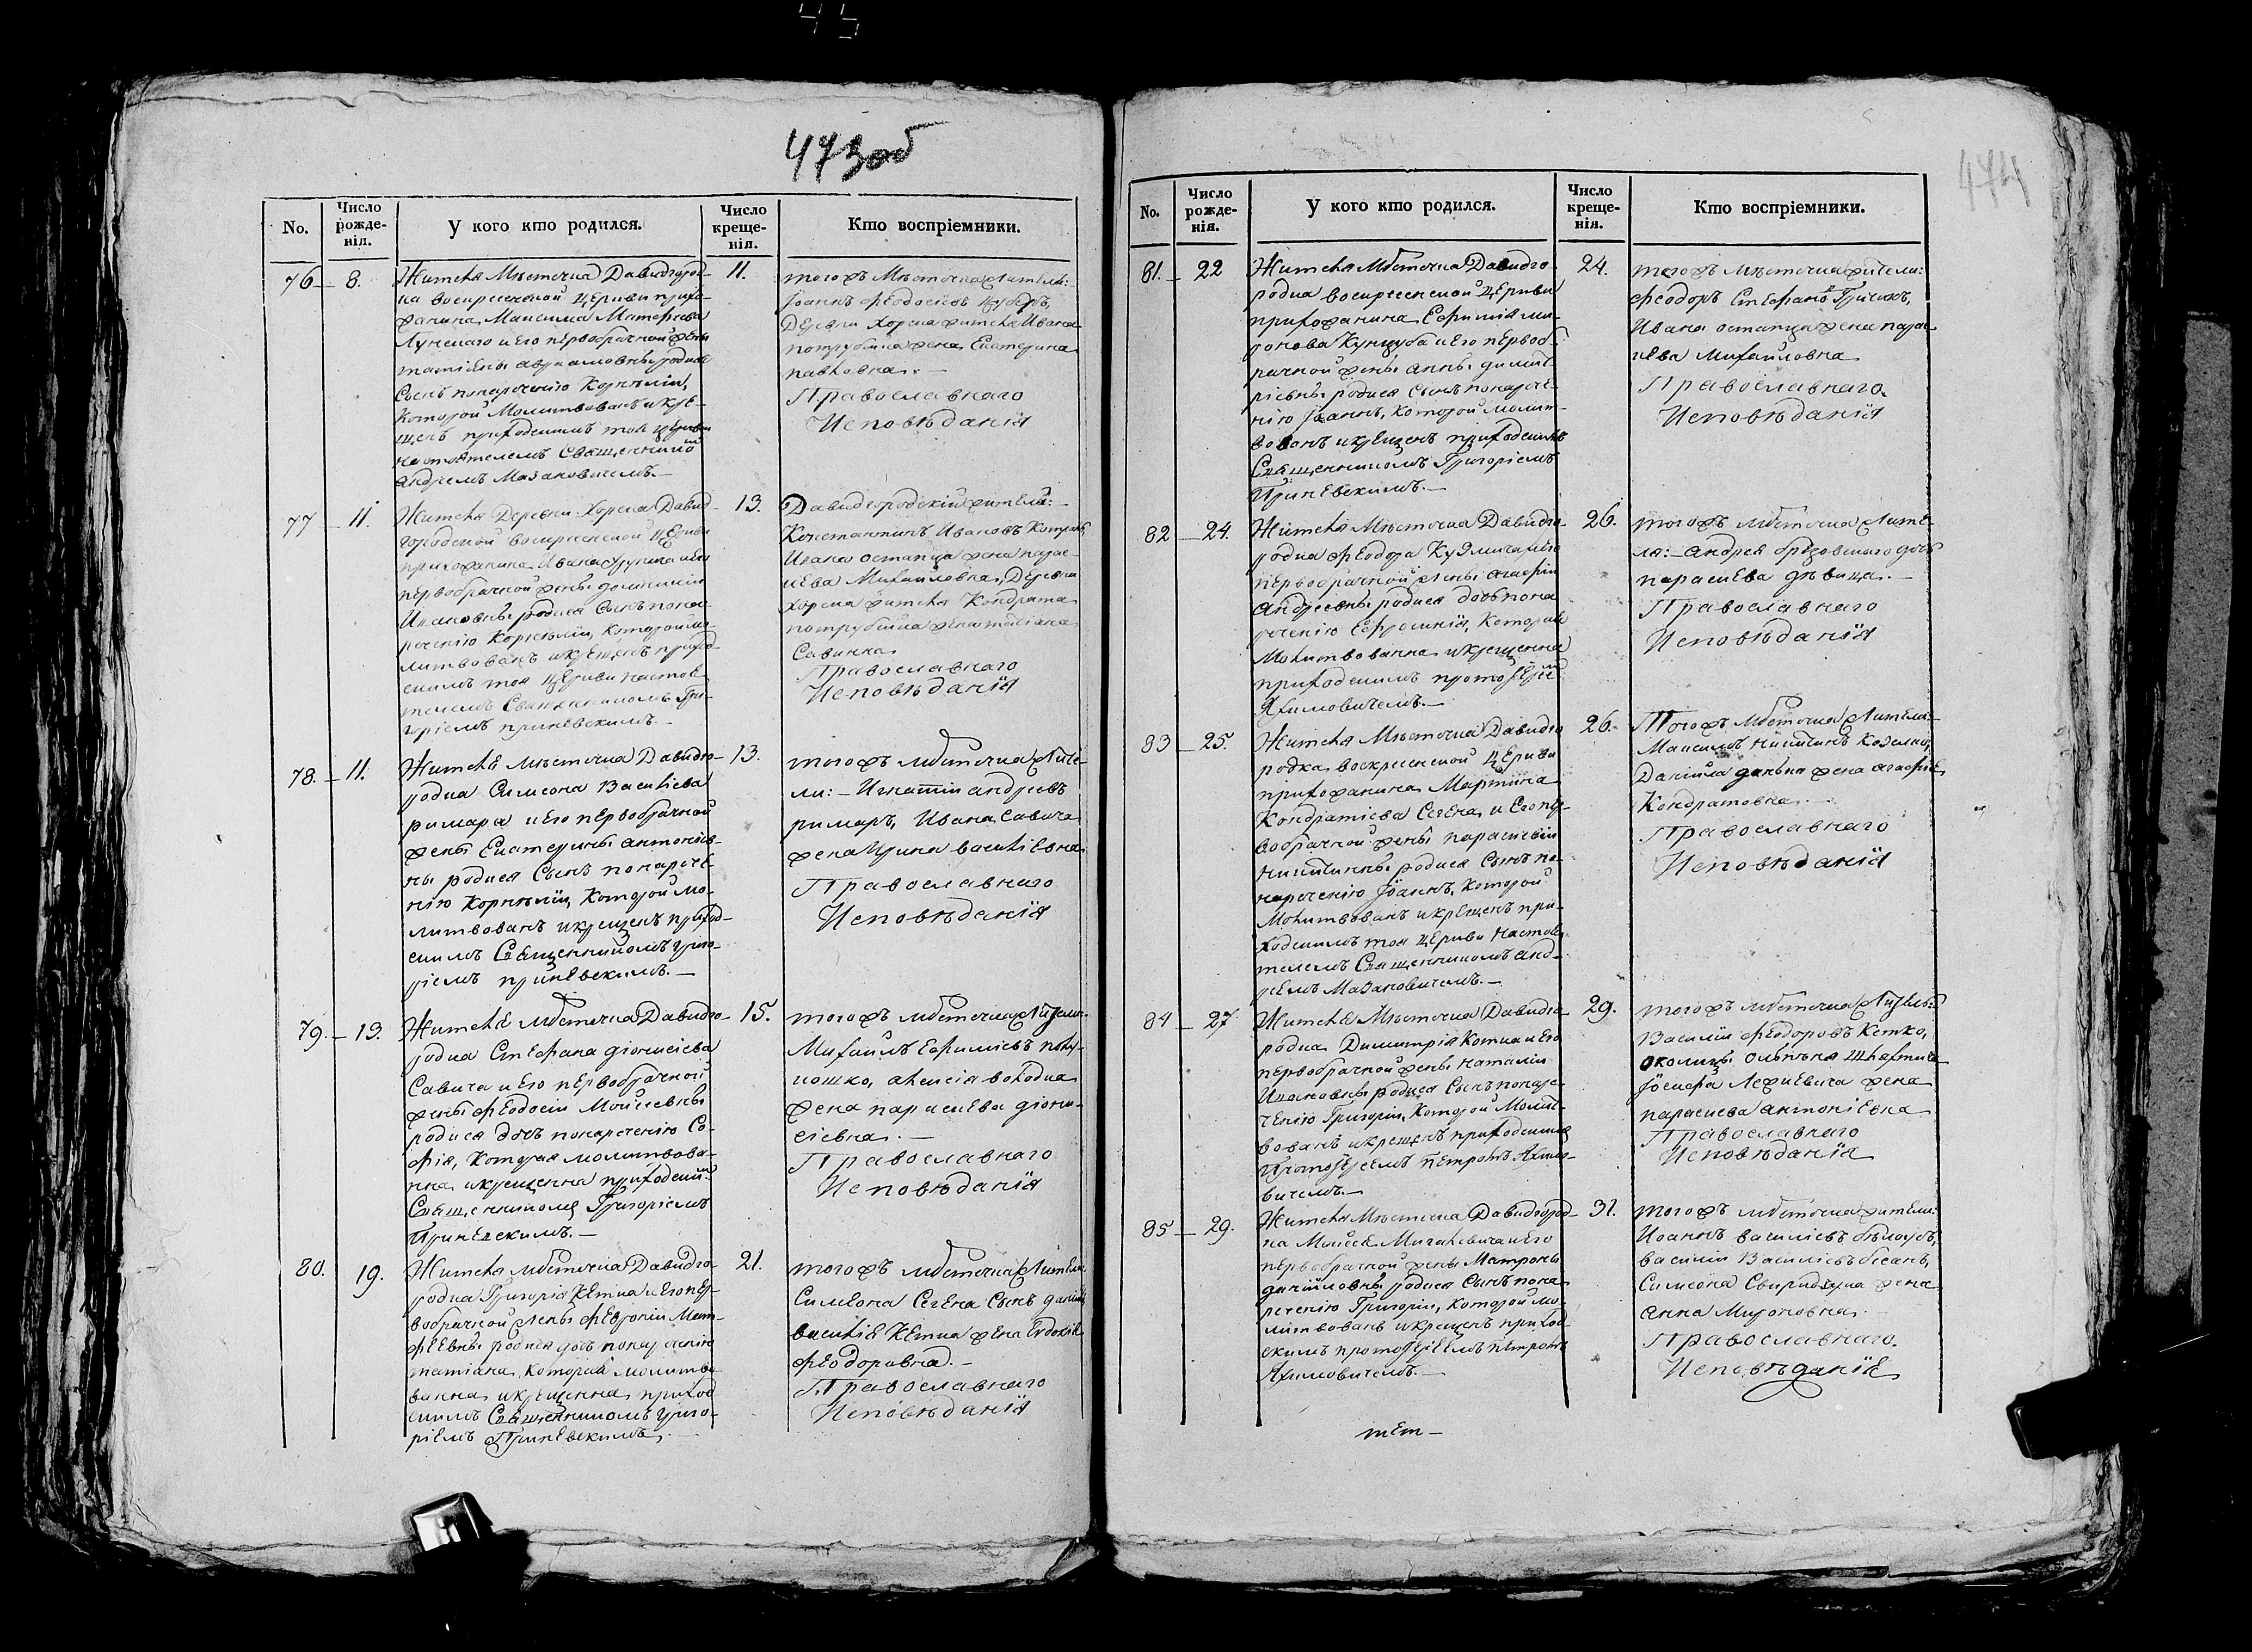 473 об
No.
Число рожденія.
У кого кто родился.
Число крещенія.
Кто воспріемники.
76 — 8.
Жителя Мѣстечка Давидгород-
ка воскресенской церкви прихо-
жанина Максима Матфеева
Лунскаго и его первобрачной жены
татіаны авраамовны родился
Сынъ понареченію Корнилій,
Которой Молитвованъ и кре-
щенъ приходскимъ тоя церкви
настоятелемъ Священникомъ
андреемъ Мазановичемъ. —
11.
тогожъ Мѣстечка жители:
Іоаннъ Феодосіевъ
Деревни Хорска жителя Ивана
потрубейка жена Екатерина
павловна. —
Православнаго
Исповѣданія
77 — 11.
Жителя Деревни Хорска Давид-
городской воскресенской церкви
прихожанина Ивана и его
первобрачной жены
Ивановны родился Сынъ пона-
реченію Корнилій, Которой мо-
литвованъ и крещенъ прихо-
скимъ тоя церкви настоя-
телемъ Священникомъ Гри-
горіемъ приневскимъ. —
13.
Давидгородскій жители: —
Константинъ Ивановъ
Ивана остапца жена парас-
кева Михайловна, Деревни
Хорска жителя Кондрата
потрубейка жена татіана
Савична
Православнаго
Исповѣданія
78. — 11.
Жителя мѣстечка Давидго-
родка Симеона Васильева
римара и его первобрачной
жены Екатерины антоніев-
ны родился Сынъ понарече-
нію Корнилій, Которой мо-
литвованъ и крещенъ приход-
скимъ Священникомъ григо-
ріемъ приневскимъ. —
13.
тогожъ мѣстечка жите-
ли: — Игнатій андреевъ
римаръ, Ивана Савича
жена Ирина васильевна
Православнаго
Исповѣданія
79. — 13.
Жителя мѣстечка Давидго-
родка Стефана діонисіева
Савича и его первобрачной
жены Феодосіи Моисеевны
родися дочь понареченію Со-
фія, Которая молитвова-
нна и крещенна приходским
Священникомъ Григоріемъ
Приневскимъ. —
15.
тогожъ мѣстечка жители:
Михаилъ Ефиміевъ
алексія володка
жена параскева діони-
сіевна. —
Православнаго
Исповѣданія
80. 19.
Жителя мѣстечка Давидго-
родка Григорія Кетка и его пер-
вобрачной жены Февроніи Мат-
феевны родися дочь понареченію
татіана, Которая молитво-
ванна и крещенна приход-
скимъ Священникомъ григо-
ріемъ Приневскимъ. —
21.
тогожъ мѣстечка жители
Симеона Сегена Сынъ даніилъ,
василія Кетка жена Евдокія
Феодоровна. —
Православнаго
Исповѣданія
474
No.
Число рожденія.
У кого кто родился.
Число крещенія.
Кто воспріемники.
81. — 22
Жителя Мѣстечка Давидго-
родка воскресенской церкви
прихожанина Ефимія ми-
ронова Кунцуба и его перво-
брачной жены анны димит-
ріевны родися Сынъ понарече-
нію Іоаннъ, Которой молит-
вованъ и крещенъ приходскимъ
Священникомъ Григоріемъ
Приневскимъ. —
24.
тогожъ мѣстечка жители:
Феодоръ Стефановъ
Ивана остапца жена парас-
кева Михайловна
Православнаго
Исповѣданія
82 — 24.
Жителя Мѣстечка Давидго-
родка Феодора и его
первобрачной жены агафіи
Андреевны родися дочь пона-
реченію Ефросинія, Которая
Молитвованна и крещенна
приходскимъ протоіереемъ
Яхимовичемъ. —
26.
тогожъ мѣстечка жите-
ля: — Андрея брезовскаго дочь
параскева дѣвица. —
Православнаго
Исповѣданія
83 — 25.
Жителя Мѣстечка Давидго-
родка воскресенской церкви
прихожанина Мартина
Кондратіева Сегена, и Его пер-
вобрачной жены параскевіи
никитины родися Сынъ по-
нареченію Іоаннъ, Которой
Молитвованъ и крещенъ при-
ходскимъ тоя церкви настоя-
телемъ Священникомъ анд-
реемъ Мазановичемъ. —
26.
Тогожъ мѣстечка жители:
Максимъ никитинъ
Даніила жена агафія
Кондратовна. —
Православнаго
Исповѣданія
84 — 27
Жителя Мѣстечка Давидго-
родка Димитрія Котка и Его
первобрачной жены наталіи
Ивановны родися Сынъ понаре-
ченію Григорій, Которой Молит-
вованъ и крещенъ приходскимъ
Протоіереемъ Петромъ Яхимо-
вичемъ. —
29.
тогожъ мѣстечка жители:
Василій Феодоровъ Кетко,
околицы
Іосифа жена
параскева антоніевна
Православнаго
Исповѣданія
85 — 29.
Жителя Мѣстечка Давидгород-
ка Моисея Михалевича и Его
первобрачной жены Матроны
даніиловны родися Сынъ пона-
реченію Григорій, Которой мо-
литвованъ и крещенъ приход-
скимъ протоіереемъ петромъ
Яхимовичемъ. —
31.
тогожъ мѣстечка жители:
Иоаннъ василіевъ
василій Василіевъ
Симеона жена
анна Мироновна. —
Православнаго.
Исповѣданія